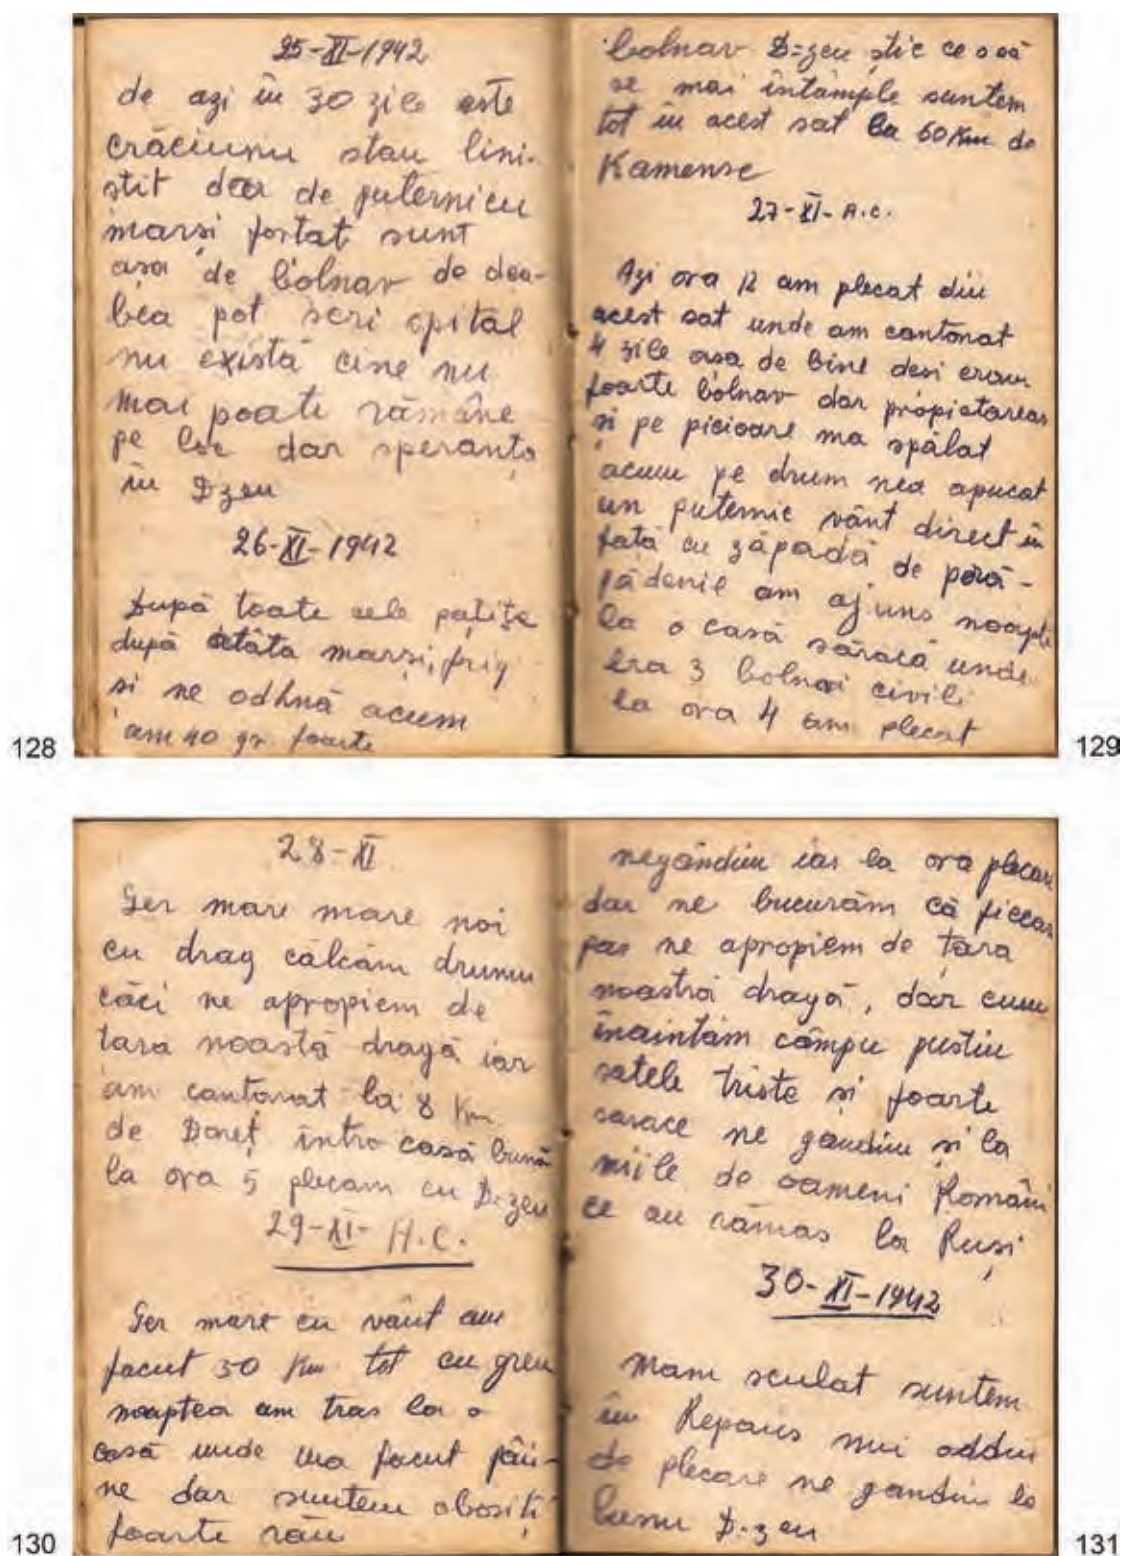 25-XI-1942
de azi în 30 zile este
crăciunu stau lini-
știt dar de puternicu
marși forțat sunt
așa de bolnav de dea-
bea pot scri spital
nu există cine nu
mai poate rămâne
pe loc dar speranța
în D-zeu
26-XI-1942
După toate cele pațite
după atâta marși, frig
si ne odhnă acum
am 40 gr. foarte
128
bolnav D-zeu știe ce o să
se mai întâmple suntem
tot în acest sat la 60 Km de
Kamense
27-XI- A.c.
Azi ora 12 am plecat din
acest sat unde am cantonat
4 zile asa de bine desi eram
foarte bolnav dar propietarea
și pe picioare ma spălat
acum pe drum nea apucat
un puternic vânt direct în
față cu zăpadă de pără-
pădenie am ajuns noapte
la o casă săracă unde
era 3 bolnavi civili
la ora 4 am plecat
129
28-XI
Ger mare mare noi
cu drag călcăm drumu
căci ne apropiem de
tara noastă dragă iar
am cantonat la 8 Km
de Doneț întro casă bună
la ora 5 plecam cu D-zeu
29-XI- A.C.
Ger mare cu vânt am
facut 30 Km tot cu greu
noaptea am tras la o
casă unde ma facut pâi-
ne dar suntem obosiți
foarte rău
130
negândim iar la ora plecare
dar ne bucurăm că fiecar
pas ne apropiem de țara
noastră dragă, dar cum
înaintăm câmpu pustiu
satele triste și foarte
sarace ne gandim și la
miile de oameni Români
ce au rămas la Ruși
30-XI-1942
Mam sculat suntem
în Repaus nui oddin
de plecare ne gandim la
bunu D-zeu
131